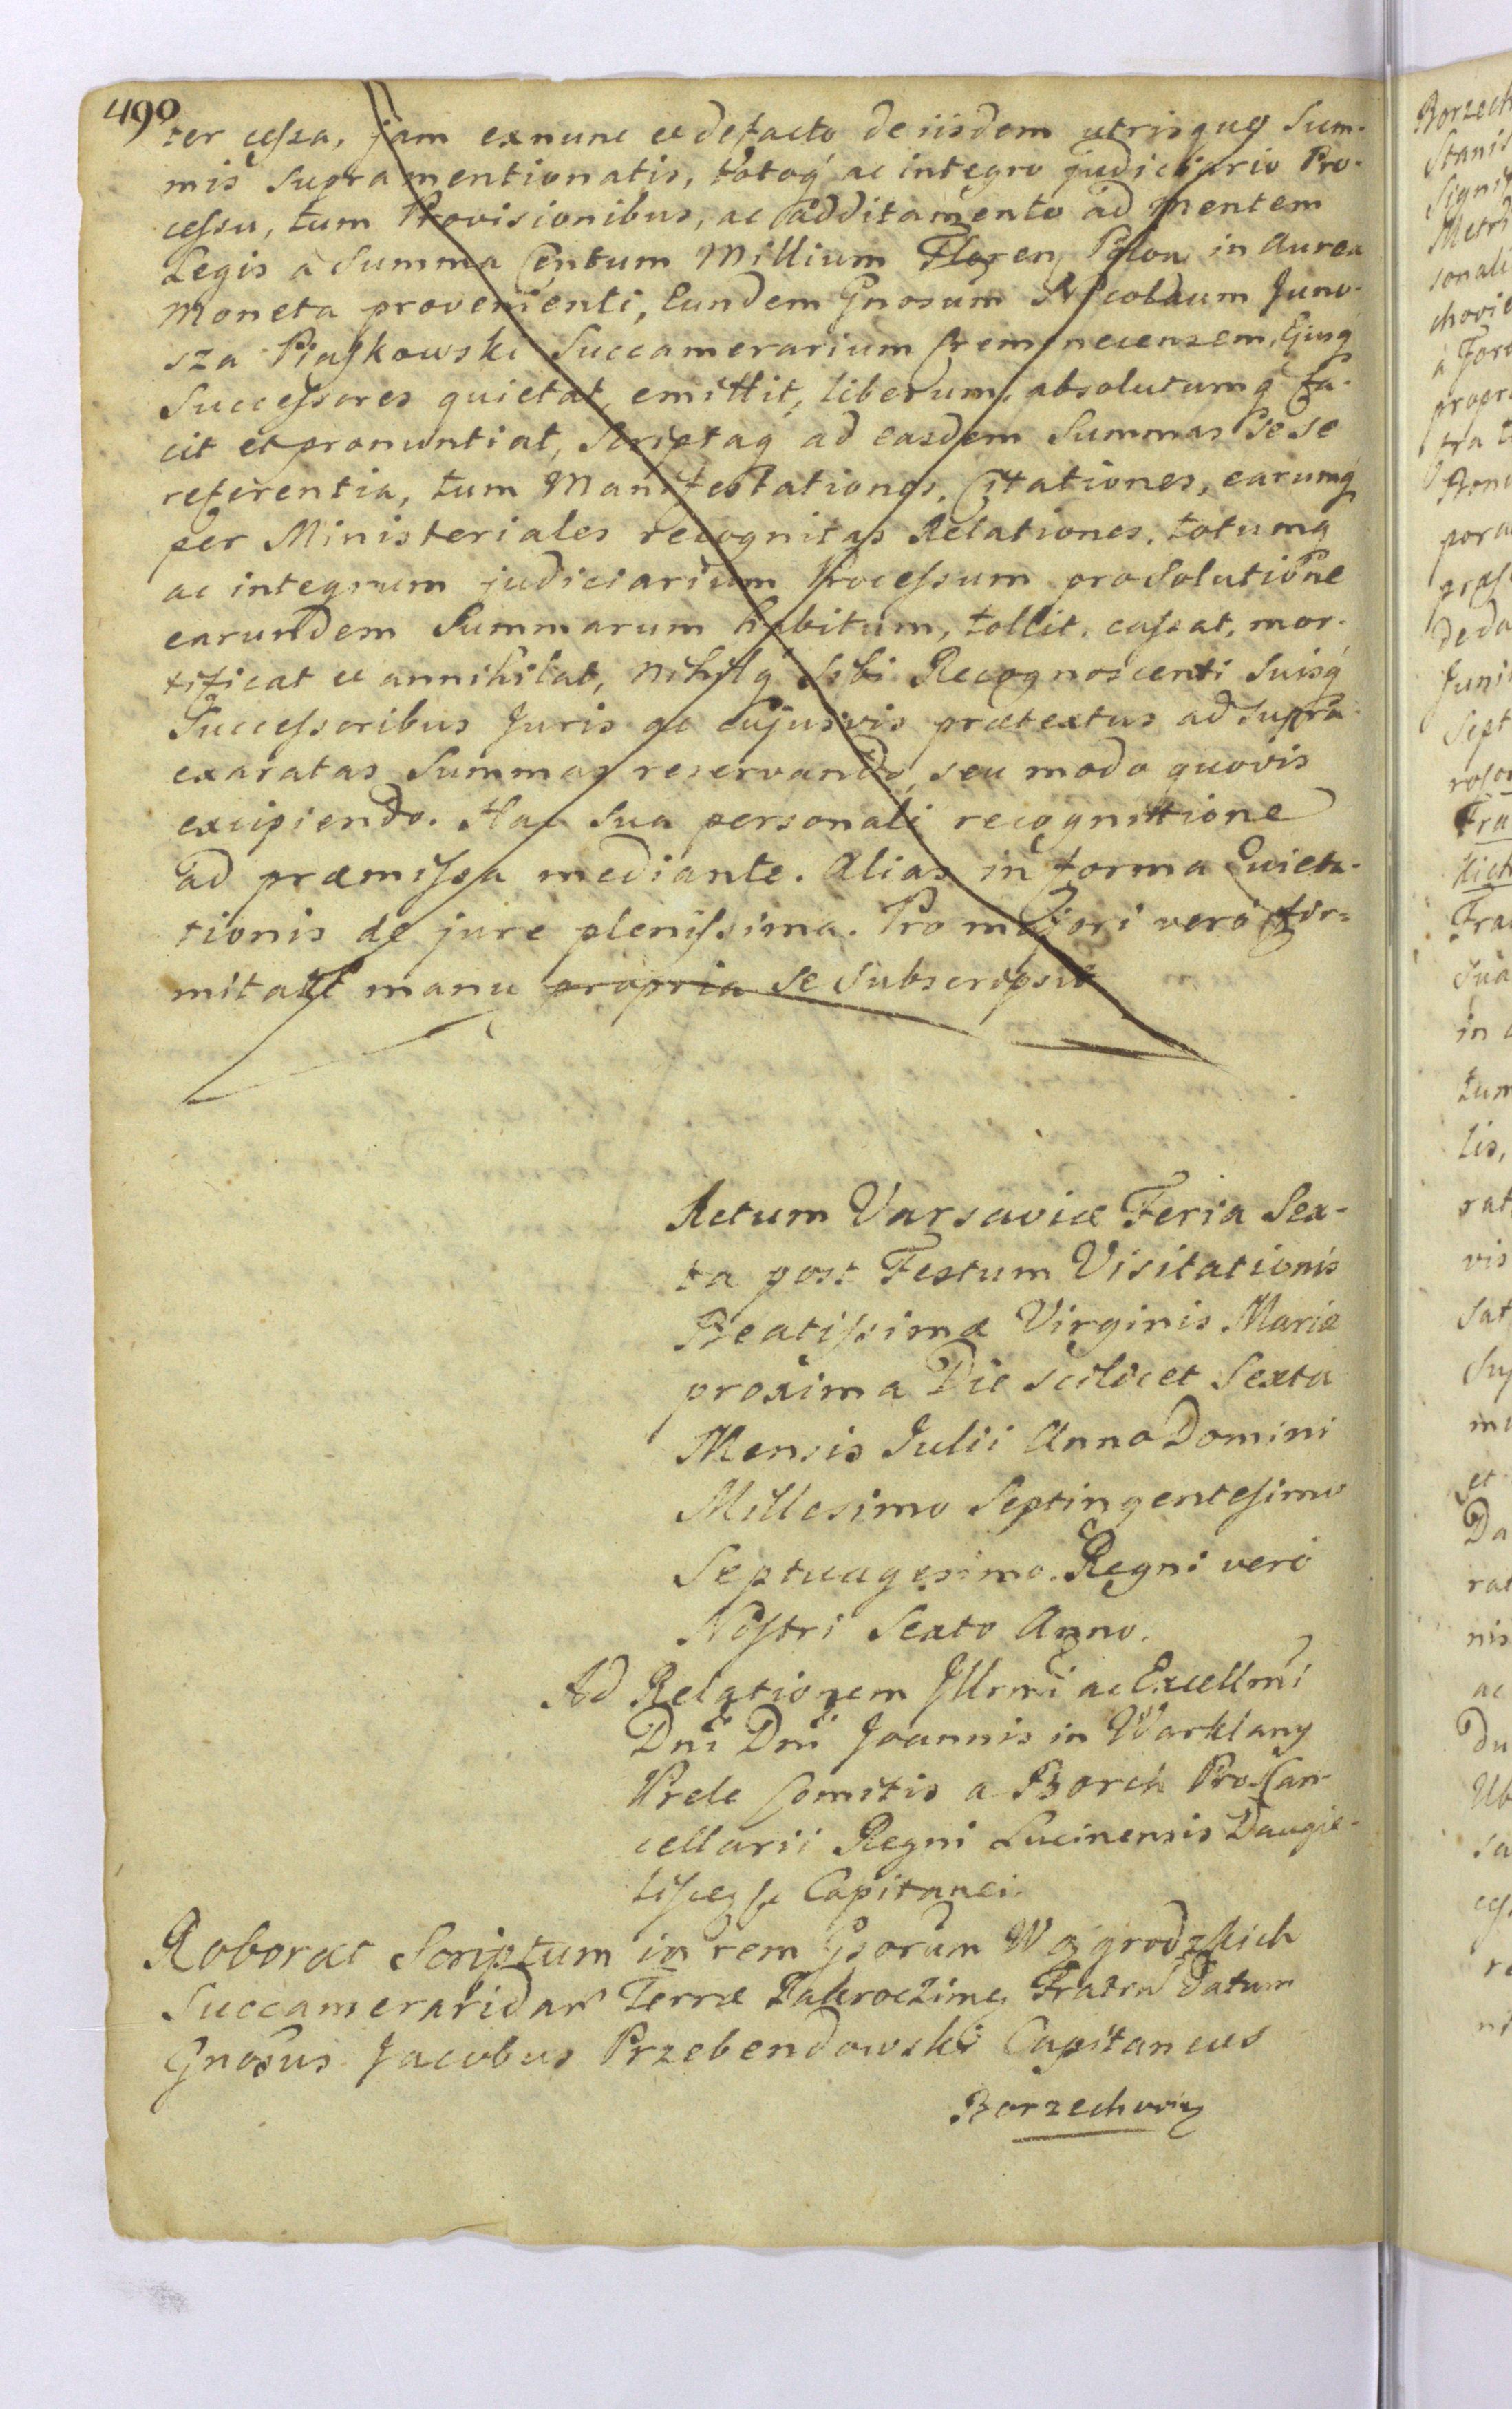 490
ter cessa, jam exnunc et defacto de iisdem utrisque Sum-
mis supramentionatis, totoq́ ac integro judiciario Pro-
cessu, tum Provisionibus, ac additamento ad mentem
Legis à Summa Centum Millium Floren Polon in Aurea
Moneta provenienti, Eundem Gnosum Nicolaum Juno-
sza Piaskowski Succamerarium Cremenecensem, Ejusq́
Successores quietat, emittit, liberum, absolutumq fa-
cit et pronuntiat, Scriptaq́ ad easdem Summas sese
referentia, tum Manifestationes, Citationes, earumq́
per Ministeriales recognitas Relationes, totumq
ac integrum judiciarium Processum pro Solutione
earundem Summarum habitum, tollit, cassat, mor-
tificat et annihilat, nihilq́ Sibi Recognoscenti Suisq́
Successoribus Juris ac cujusvis prætextus ad supra-
exaratas Summas reservando, seu modo quovis
excipiendo. Hac sua personali recognitione
ad præmissa mediante. Alias in forma Quieta-
tionis de jure plenissima. Pro majori verò fir=
mitate manu propria se subscripsit
Actum Varsaviæ Feria Sex-
ta post Festum Visitationis
Beatissimæ Virginis Mariæ
proxima Die scilicet Sexta
Mensis Julii Anno Domini
Millesimo Septingentesimo
Septuagesimo. Regni verò
Nostri Sexto Anno.
Ad Relationem Illrmi ac Excellmi
Dni Dni Joannis in Warklany
Prele Comitis a Borch Pro Can-
cellarii Regni Lucinensis Daugie-
liscen Capitanei.
Roborat Scriptum in rem Gsorum Wozgrodzkich
Succameraridar Terræ Zakroczimen Fratru Datum
Gnosus Jacobus Przebendowski Capitaneus
Borzechovien